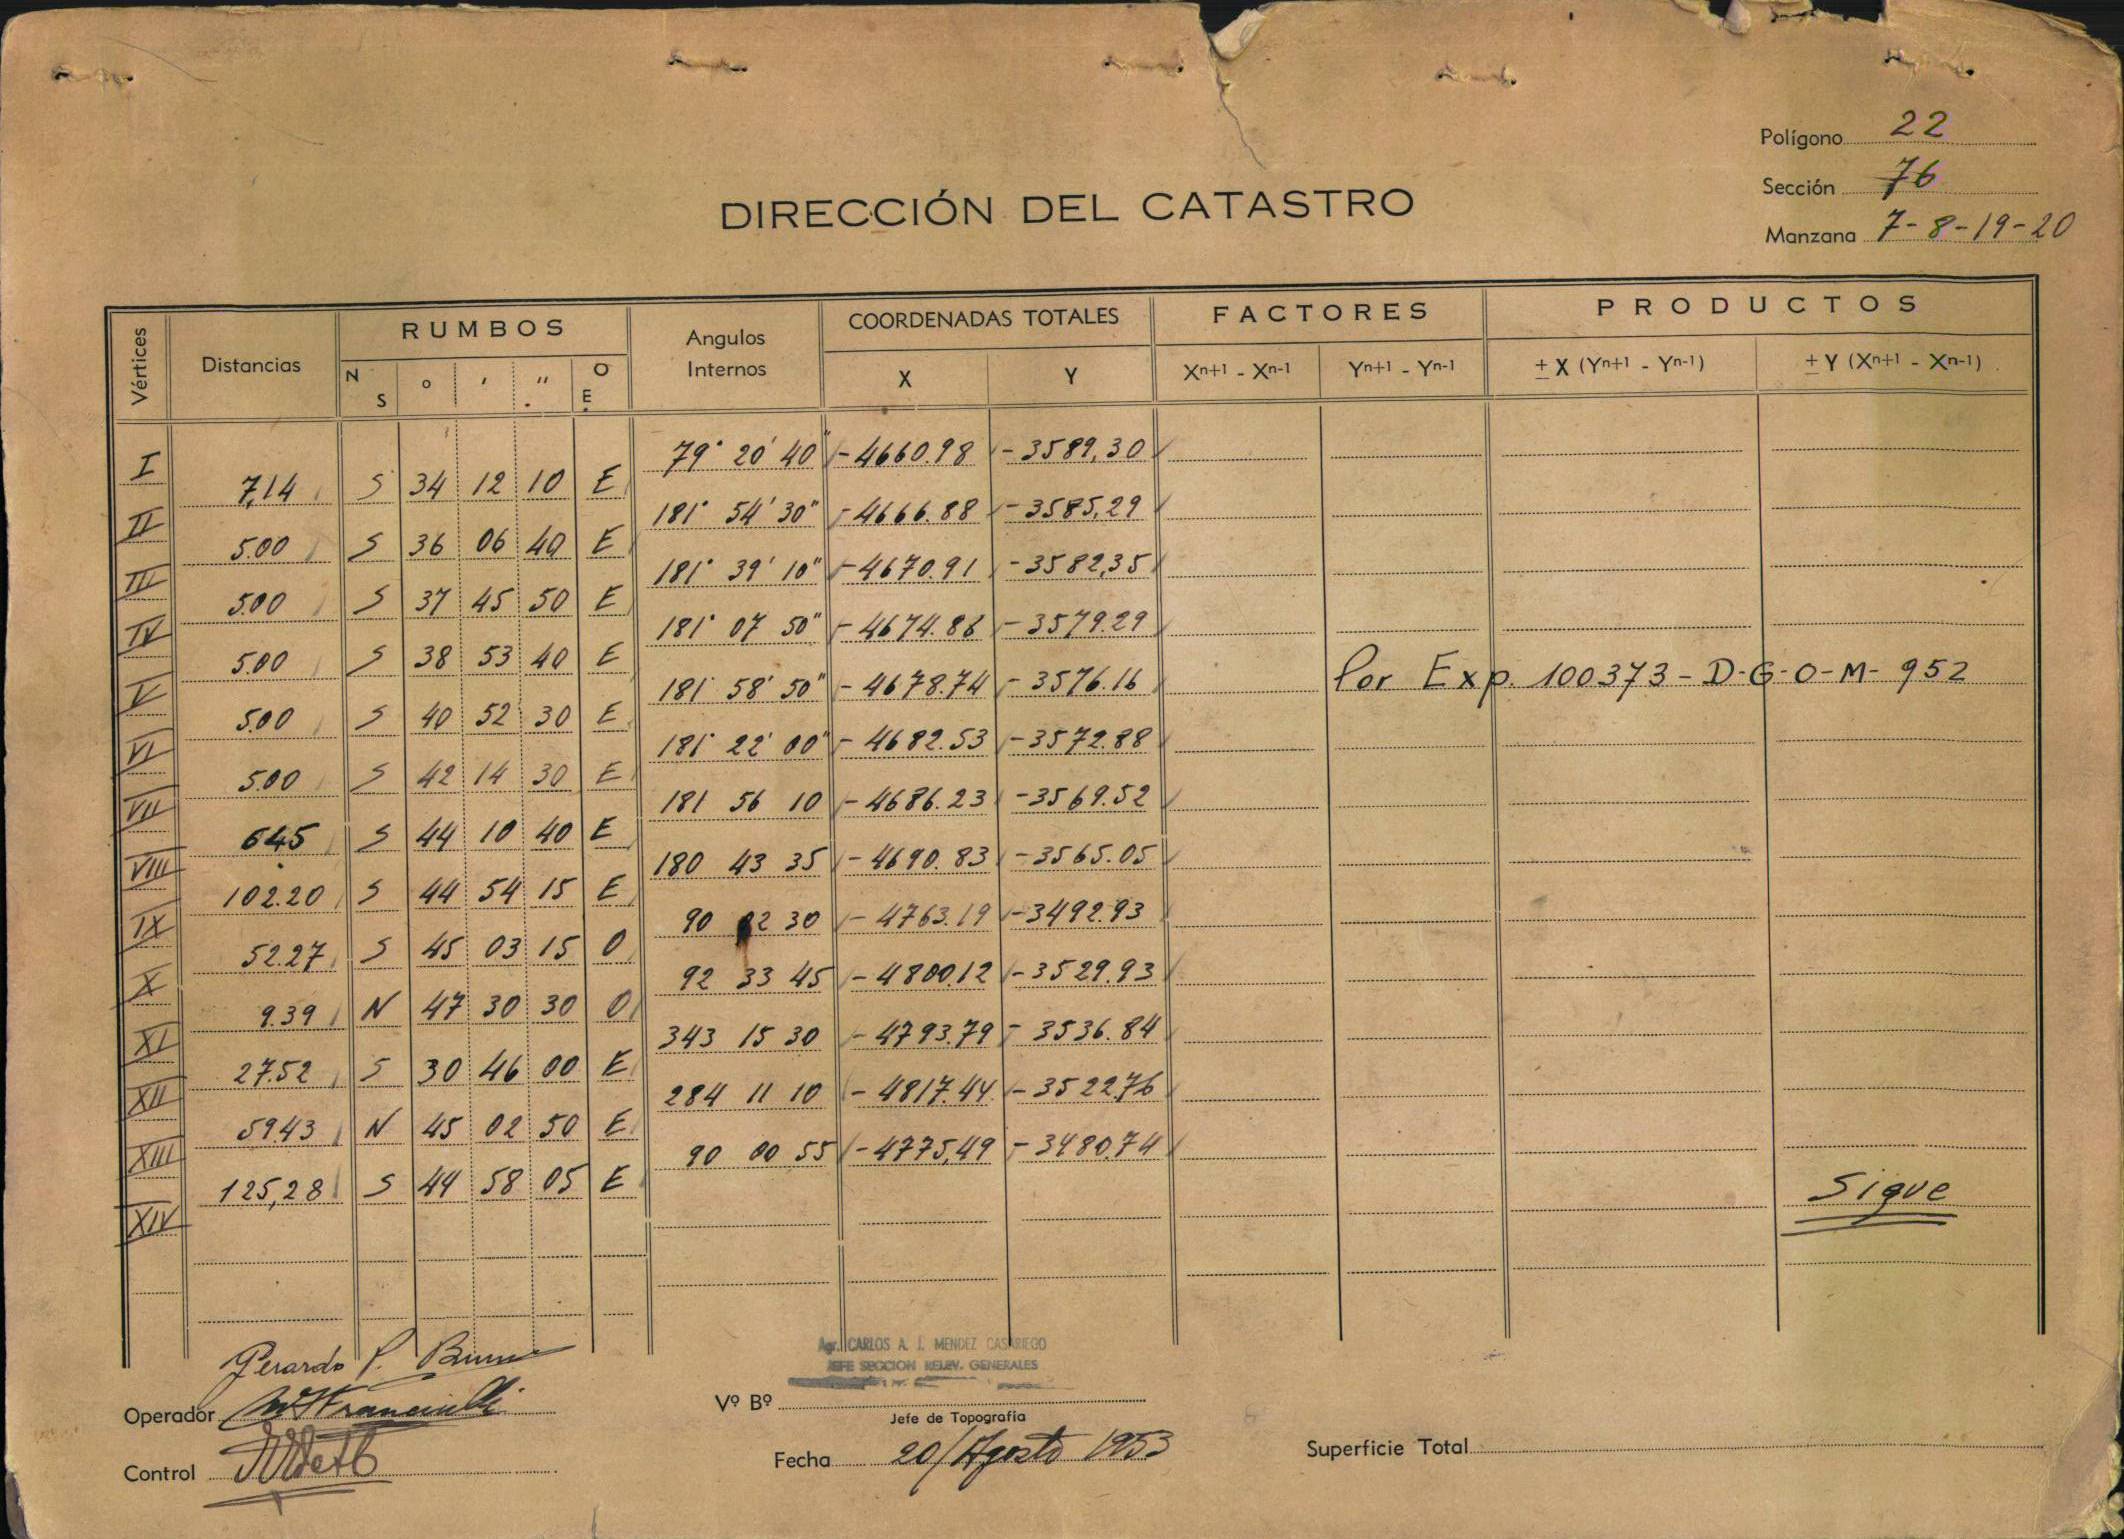 Polígono 22
Sección 76
Manzana 7-8-19-20
DIRECCIÓN DEL CATASTRO
Vértices Distancias RUMBOS Angulos Internos COORDENADAS TOTALES FACTORES PRODUCTOS
N S o ' '' O E X Y Xn+1 - Xn-1 Yn+1 - Yn-1 ± X (Yn+1 - Yn-1) ± Y (Xn+1 - Xn-1)
I 79° 20' 40" -4660.98 -3589,30
7,14 S 34 12 10 E
II 181° 54' 30" -4666.88 -3585,29
5.00 S 36 06 40 E
III 181° 39' 10" -4670.91 -3582,35
5.00 S 37 45 50 E
IV 181° 07 50" -4674.86 -3579.29
5.00 S 38 53 40 E
V 181° 58' 50" -4678.74 -3576.16 Por Exp. 100373-D-G-O-M-952
5.00 S 40 52 30 E
VI 181° 22' 00" -4682.53 -3572.88
5.00 S 42 14 30 E
VII 181 56 10 -4686.23 -3569.52
6.45 S 44 10 40 E
VIII 180 43 35 -4690.83 -3565.05
102.20 S 44 54 15 E
IX 90 02 30 -4763.19 -3492.93
52.27 S 45 03 15 O
X 92 33 45 -4800.12 -3529.93
9.39 N 47 30 30 O
XI 343 15 30 -4793.79 -3536.84
27.52 S 30 46 00 E
XII 284 11 10 -4817.44 -3522.76
59.43 N 45 02 50 E
XIII 90 00 55 -4775,49 -3480,74
125,28 S 44 58 05 E Sigue
XIV
Gerardo P.
Agr. CARLOS A. J. MENDEZ CASARIEGO
JEFE SECCION RELEV. GENERALES
Operador
Vº Bº
Jefe de Topografía
Control
Fecha 20/Agosto 1953
Superficie Total